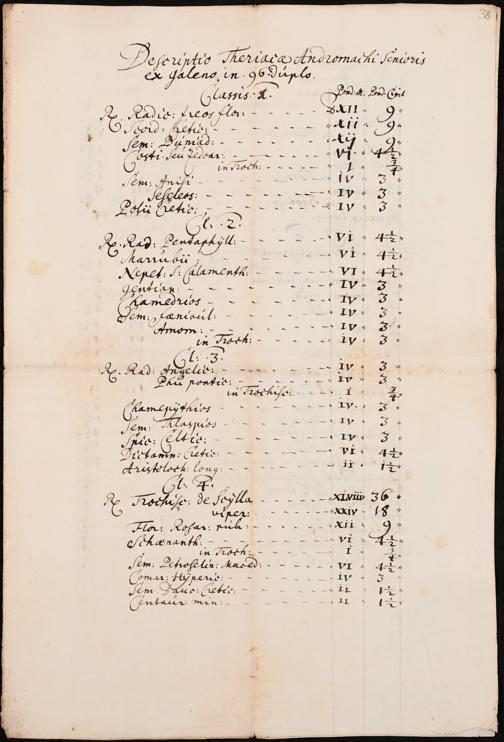 38
Descriptio Theriacæ Andromachi Senioris
ex Galeno, in 96. duplo.
Classis. 1. Pond. M. Pond. Civil
℞. Radic: Ireos flor: XII 9
Scord: Cretic: xii 9
Sem: xij 9
Costi seu Zedoar: vi 4 1/2
in Troch: 1 3/4
Sem: Anisi iv 3
Seseleos: IV 3
Polii Cretic: IV 3
Cl. 2.
℞. Rad: Pentaphyll: Vi 4 1/2
Marrubii vi 4 1/2
Nepet: s: Calamenth: VI 4 1/2
Gentian: IV 3
Chamedrios IV 3
Sem: fœnicul: IV 3
Amom: IV 3
in Troch: iv 3
Cl. 3.
℞. Rad: Angelic: iv 3
Phu pontic: iv 3
in Trochisc: i 3/4
Chamepythios iv 3
Sem: Thlaspios iv 3
Spic: Celtic: iv 3
Dictamn: Cretic: vi 4 1/2
Aristoloch: long: ii 1 1/2
Cl. 4.
℞ Trochisc: de Scylla XLViii 36
viper: xxiv 18
Flor: Rosar: rub: xii 9
Schænanth: vi 4 1/2
in Troch: i 3/4
Sem: Petroselin: Maced: VI 4 1/2
Comar: Hyperic: iv 3
Sem: Dauc: Cretic: ii 1 1/2
Centaur min: ii 1 1/2